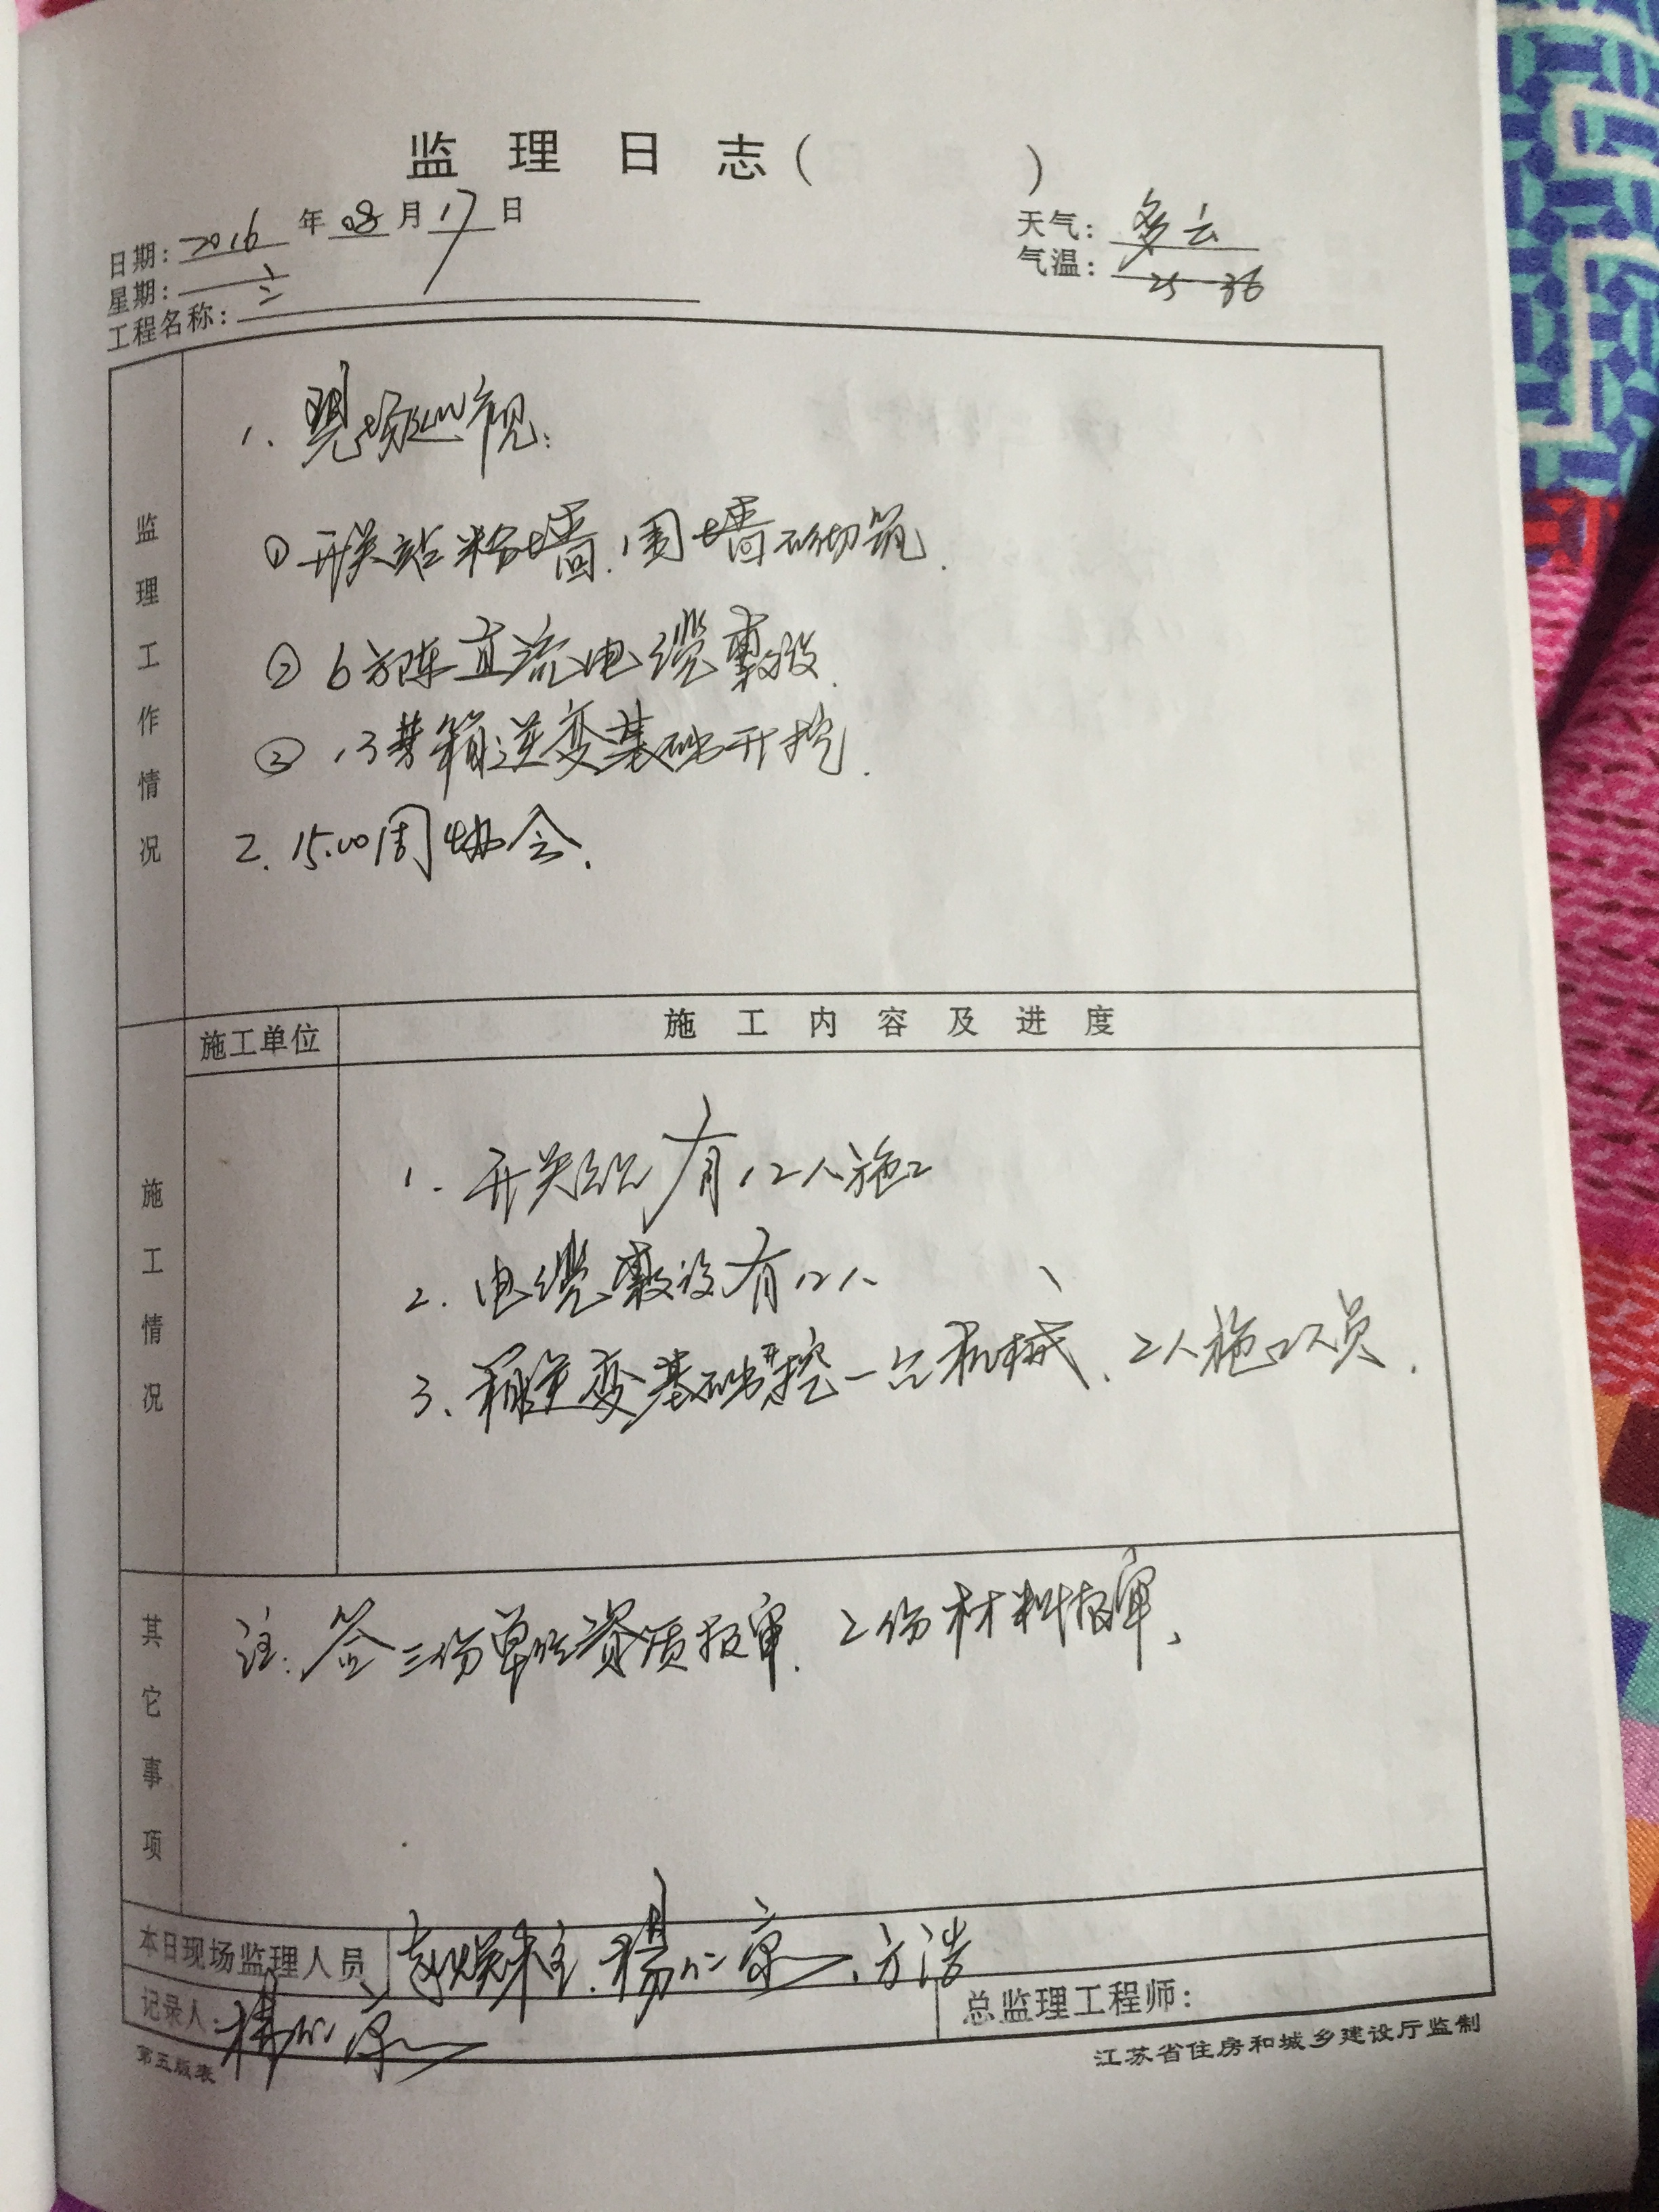 监理日志( )
日期: 2016 年 08 月 17 日
天气: 多云
星期: 三
气温: 25 36
工程名称:
监理工作情况
1. 现场巡视:
① 开关站粉墙.围墙砌筑.
② 6方阵直流电缆敷设.
③ 13#箱逆变基础开挖.
2. 15:00周协会.
施工单位
施工内容及进度
施工情况
1. 开关站有12人施工
2. 电缆敷设有12人
3、箱逆变基础开挖一台机械、2人施工人员.
其它事项
注: 签三份单位资质报审. 2份材料报审、
本日现场监理人员 方浩
记录人:
总监理工程师:
第五版表
江苏省住房和城乡建设厅监制